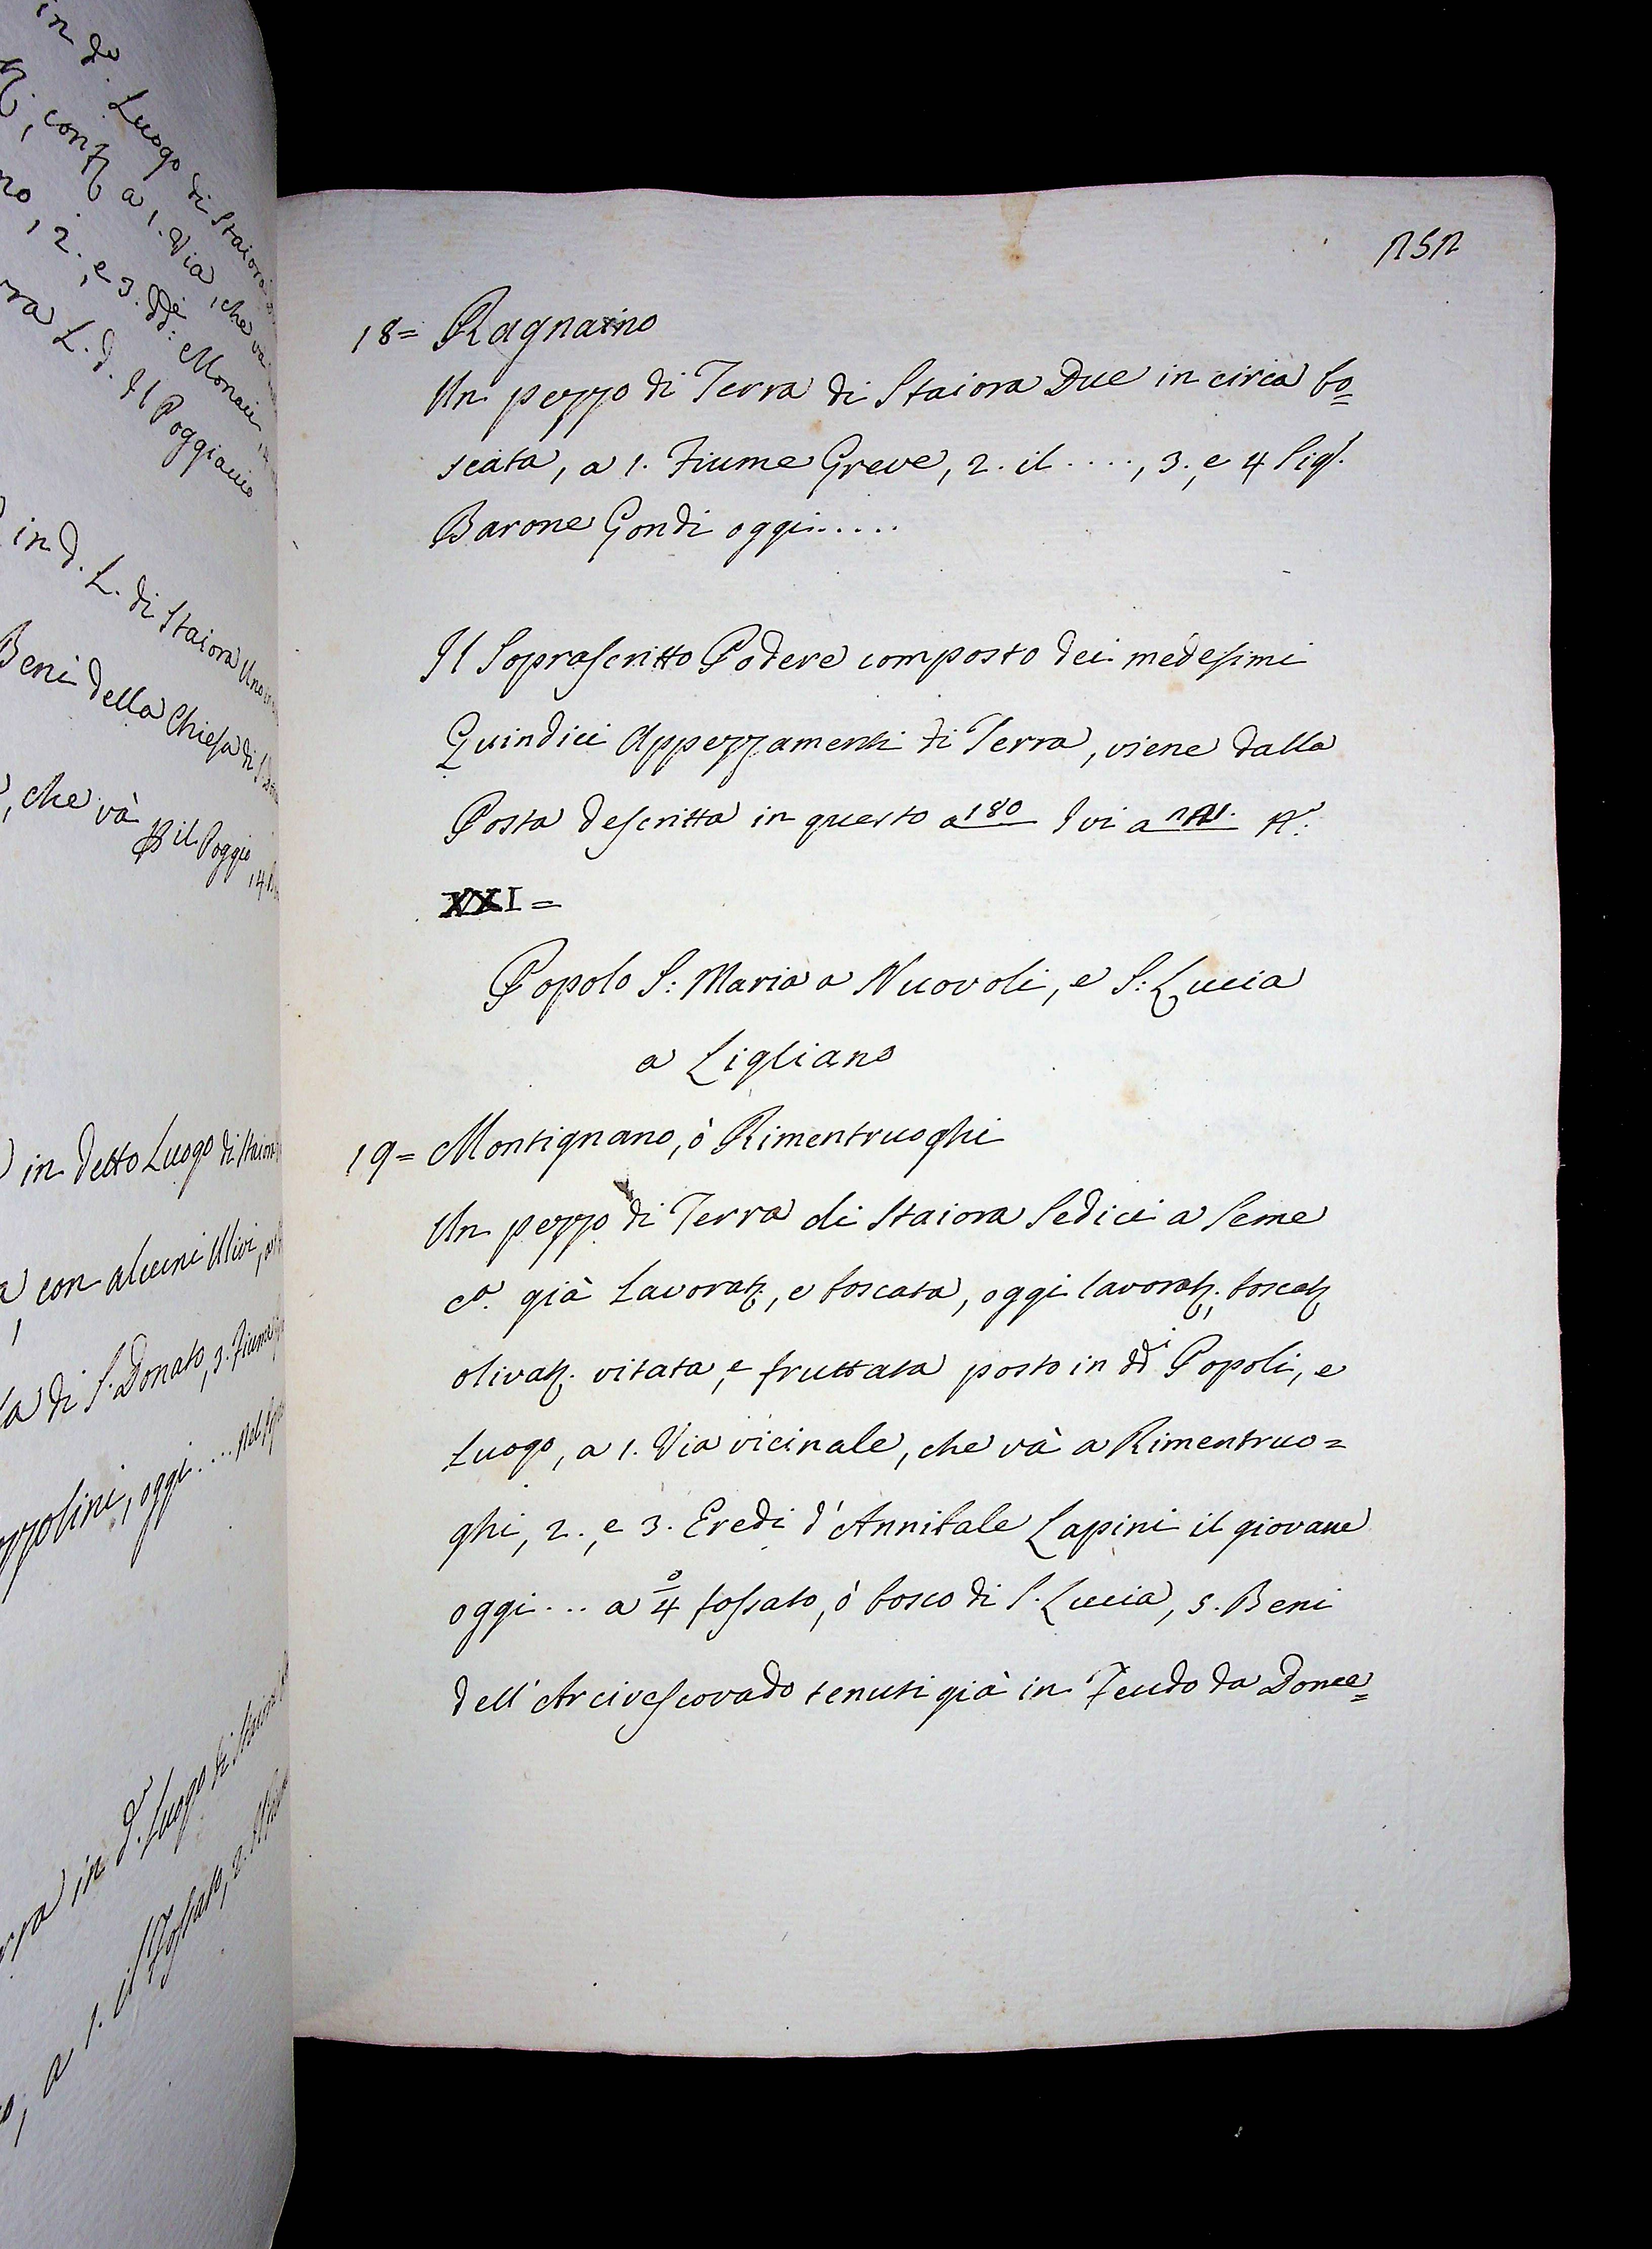 in d.º Luogo di Staiora
, conf a 1. Via, che va
no, 2., e 3. dd.i Monaci, 4
rra L. d. Il Poggiaccio
in d. L. di Staiora Uno
Beni della Chiesa di S.
, che và p il Poggio, 4.
in detto Luogo di Staiora
, con alcuni Ulivi,
di S. Donato, 3. Fiume
zzolini, oggi.... Nel
rra in d.º Luogo di Staiora
, a 1. il Fossato, 2.
252
18= Ragnaino
Un pezzo di Terra di Staiora Due in circa bo=
scata, a 1. Fiume Greve, 2. il ...., 3., e 4 Sig.
Barone Gondi oggi.....
Il Soprascritto Podere composto dei medesimi
Quindici Appezzamenti di Terra, viene dalla
Posta descritta in questo a 180 Ivi a N.º
XXI=
Popolo S: Maria a Nuovoli, e S: Lucia
a Ligliano
19= Montignano, ò Rimentruoghi
Un pezzo di Terra di Staiora Sedici a Seme
c.ª già Lavorat., e boscata, oggi lavorat., boscat
olivat. vitata, e fruttata posto in dd.i Popoli, e
Luogo, a 1. Via vicinale, che và a Rimentruo=
ghi, 2., e 3. Eredi d'Annibale Lapini il giovane
oggi... a 4º fossato, ò bosco di S. Lucia, 5. Beni
dell'Arcivescovado tenuti già in Feudo da Donce=